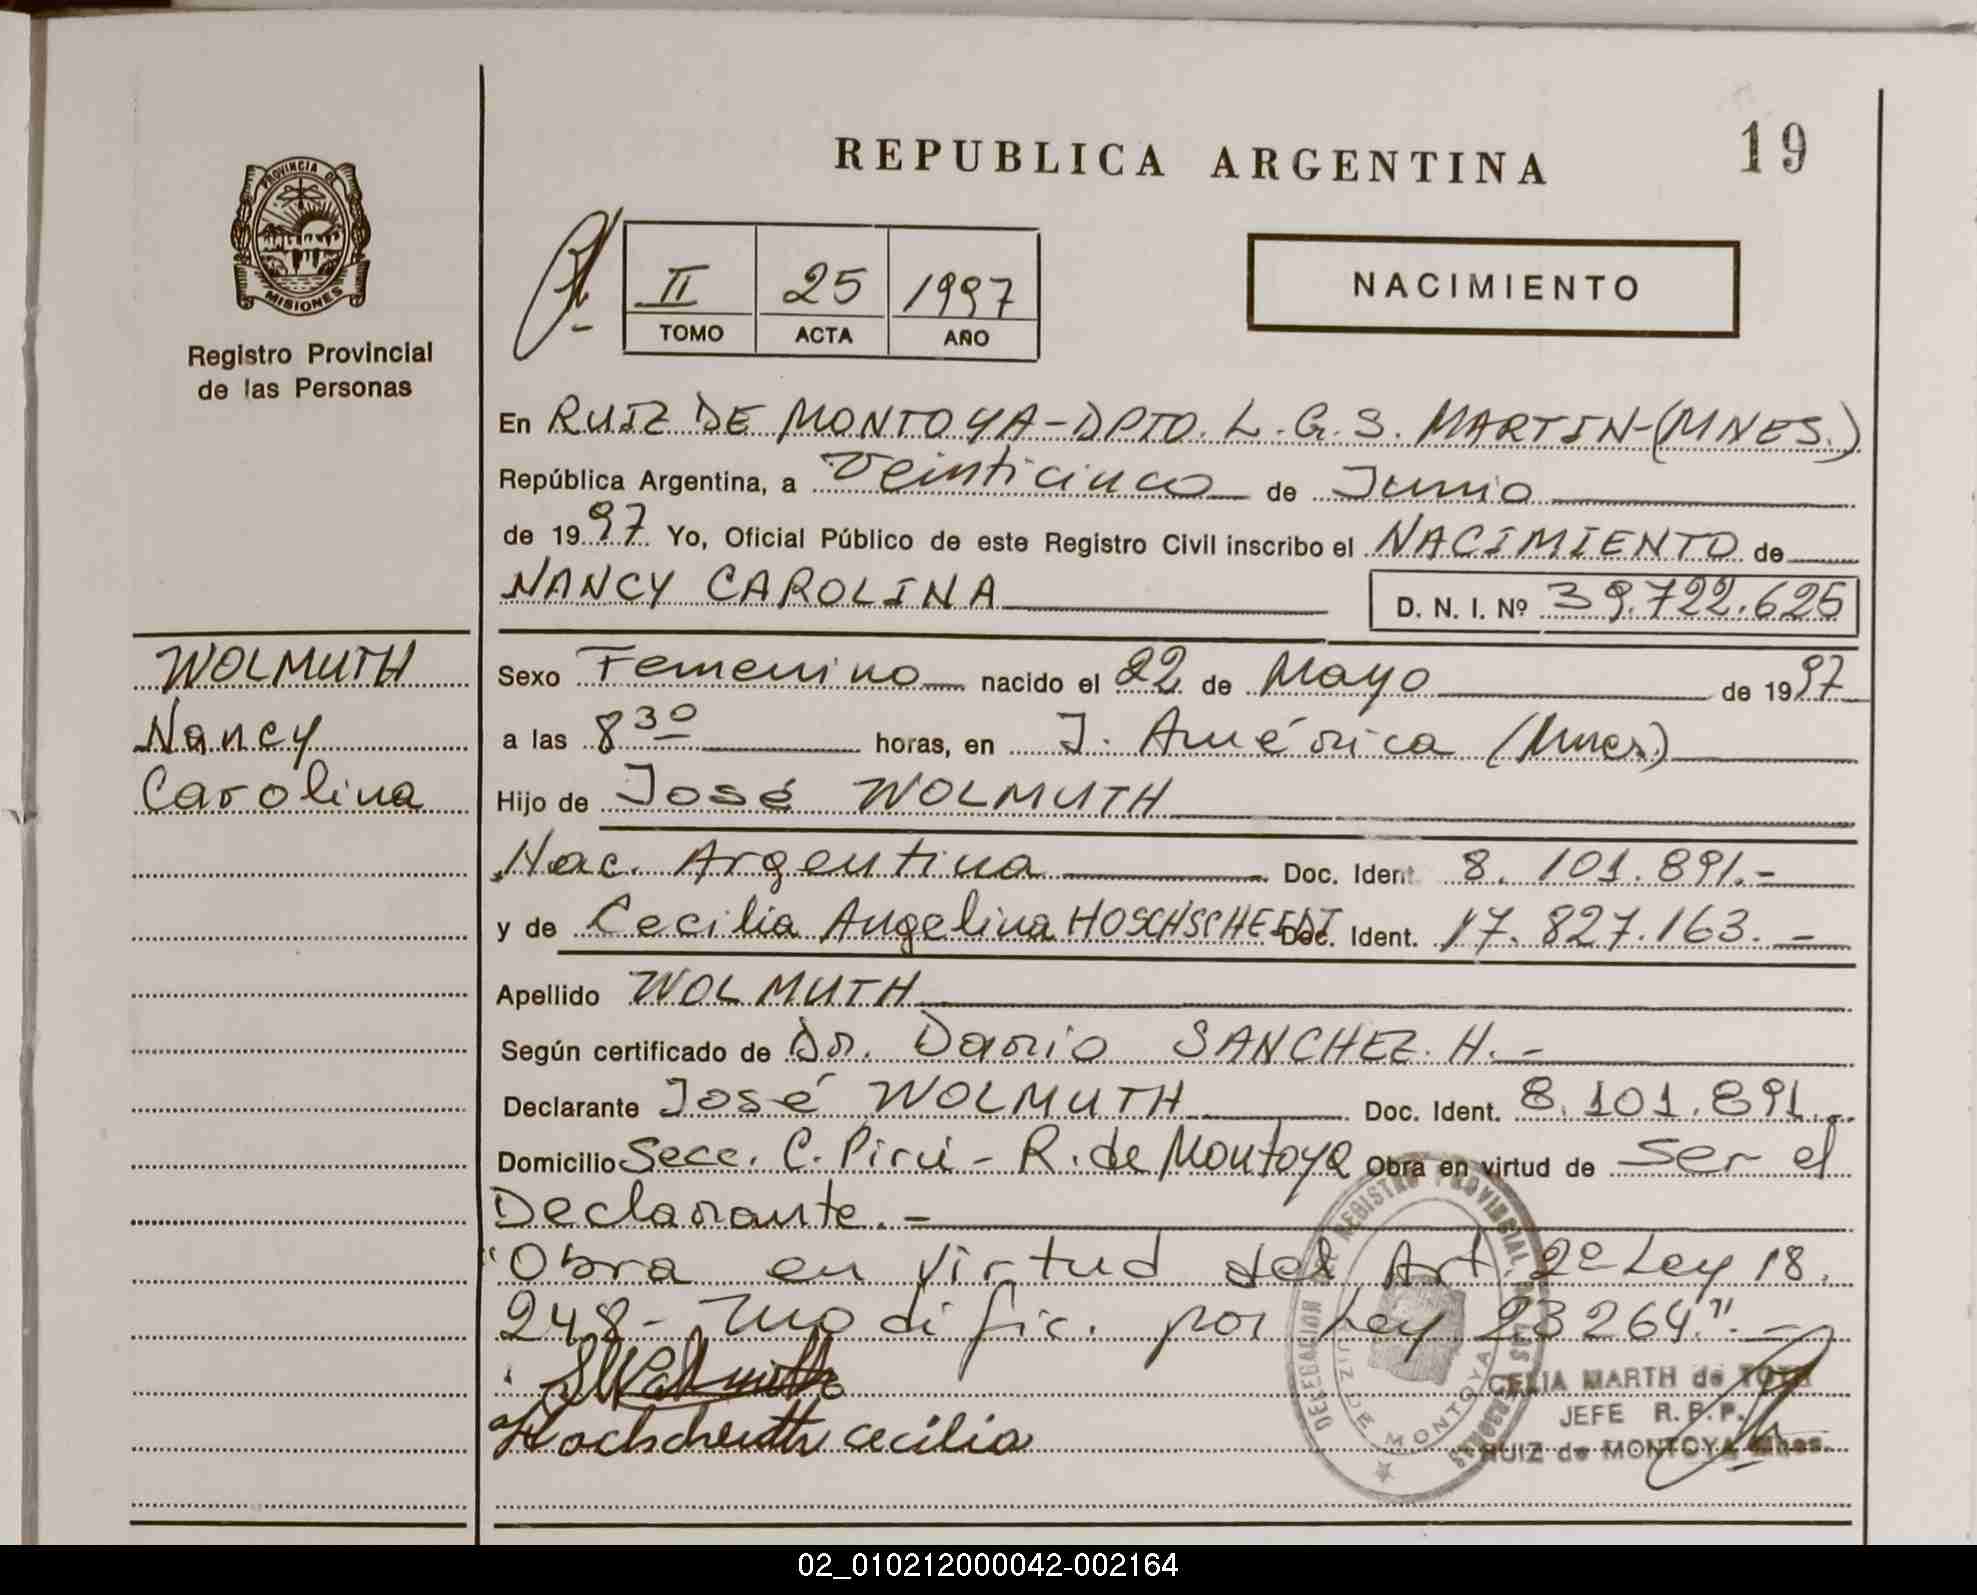 REPUBLICA ARGENTINA
19
PROVINCIA DE
MISIONES
Registro Provincial
de las Personas
II 25 1997
TOMO ACTA AÑO
NACIMIENTO
En RUIZ DE MONTOYA-DPTO. L.G.S. MARTIN-(MNES.)
República Argentina, a Veinticinco de Junio
de 1997 Yo, Oficial Público de este Registro Civil inscribo el NACIMIENTO de
NANCY CAROLINA D. N. I. Nº 39.722.625
WOLMUTH
Nancy
Carolina
Sexo Femenino nacido el 22 de Mayo de 1997
a las 8 30 horas, en J. América (Mnes.)
Hijo de José WOLMUTH
Nac. Argentina Doc. Ident. 8.101.891.-
y de Cecilia Angelina HOSCHSCHEIDT Doc. Ident. 17.827.163.-
Apellido WOLMUTH
Según certificado de Dr. Dario SANCHEZ. H.-
Declarante José WOLMUTH Doc. Ident. 8.101.891.-
Domicilio Secc. C. Pirú - R. de Montoya Obra en virtud de ser el
Declarante.-
"Obra en virtud del Art. 2º Ley 18.
248- modific. por Ley 23264".-
Hochscheidth cecilia
DELEGACION DEL REGISTRO PROVINCIAL DE LAS PERSONAS
RUIZ DE MONTOYA
CELIA MARTH de TOTH
JEFE R.P.P.
RUIZ de MONTOYA Mnes.
02_010212000042-002164